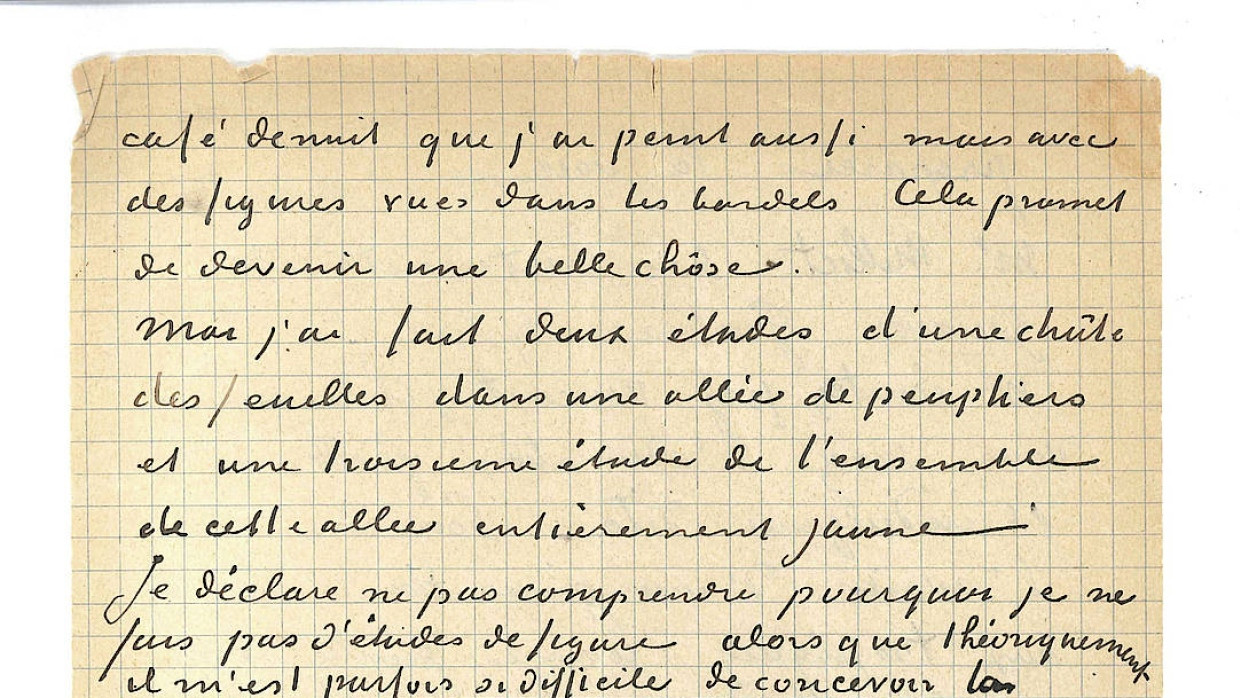 café de nuit que j'ai peint aussi mais avec
des figures vues dans les bordels Cela promet
de devenir une belle chôse.
Moi j'ai fait deux études d'une chûte
des feuilles dans une allée de peupliers
et une troisieme étude de l'ensemble
de cette allée entièrement jaune
Je déclare ne pas comprendre pourquoi je ne
fais pas d'études de figure alors que théoriquement
il m'est parfois si difficile de concevoir la